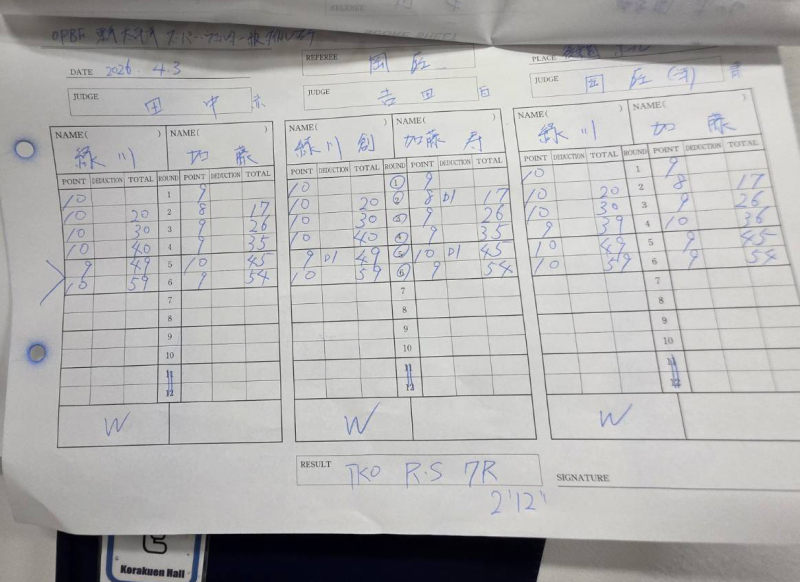 OPBF
DATE 2026. 4.3
REFEREE
PLACE
JUDGE 田中 赤
JUDGE 吉田 白
JUDGE 青
NAME( ) NAME( ) NAME( ) NAME( ) NAME( ) NAME( )
緑川 加藤 緑川 創 加藤 寿 緑川 加藤
POINT DEDUCTION TOTAL ROUND POINT DEDUCTION TOTAL POINT DEDUCTION TOTAL ROUND POINT DEDUCTION TOTAL POINT DEDUCTION TOTAL ROUND POINT DEDUCTION TOTAL
10 1 9 10 1 9 10 1 9
10 20 2 8 17 10 20 2 8 D1 17 10 20 2 8 17
10 30 3 9 26 10 30 3 9 26 10 30 3 9 26
10 40 4 9 35 10 40 4 9 35 9 39 4 10 36
9 49 5 10 45 9 D1 49 5 10 D1 45 10 49 5 9 45
10 59 6 9 54 10 59 6 9 54 10 59 6 9 54
7 7 7
8 8 8
9 9 9
10 10 10
11 11 11
12 12 12
W W W
RESULT TKO R.S 7R
2'12"
SIGNATURE
Korakuen Hall